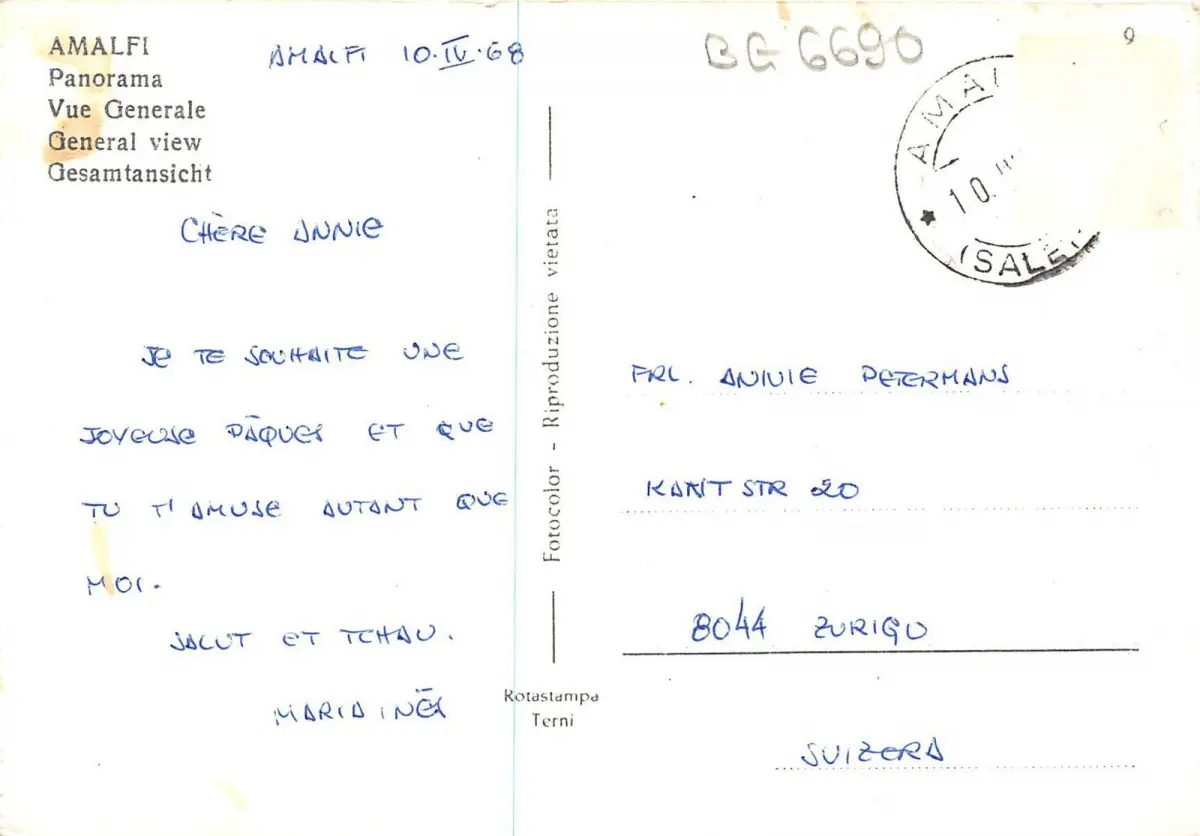 AMALFI
Panorama
Vue Generale
General view
Gesamtansicht
AMALFI 10.IV.68
CHÈRE ANNIE
JE TE SOUHAITE UNE
JOYEUSE PÂQUES ET QUE
TU T'AMUSE AUTANT QUE
MOI.
SALUT ET TCHAU.
MARIA INÊS
Fotocolor - Riproduzione vietata
Rotastampa
Terni
BG 6690
9
10.
(SALE
FRL. ANNIE PETERMANS
KANTSTR 20
8044 ZURIGO
SUIZERA